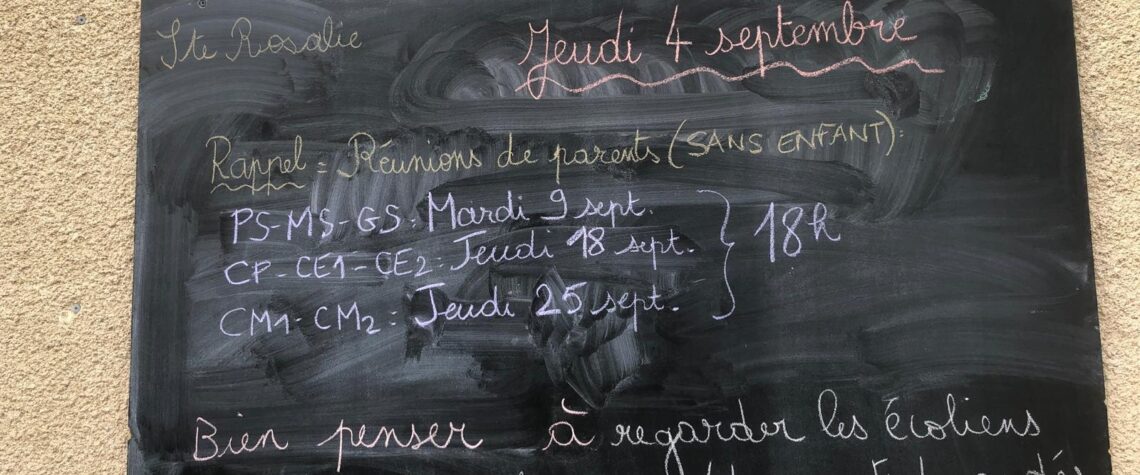 Ste Rosalie
Jeudi 4 septembre
Rappel : Réunions de parents (SANS ENFANT) :
PS-MS-GS : Mardi 9 sept.
CP-CE1-CE2 : Jeudi 18 sept.
CM1-CM2 : Jeudi 25 sept.
18h
Bien penser à regarder les écoliens